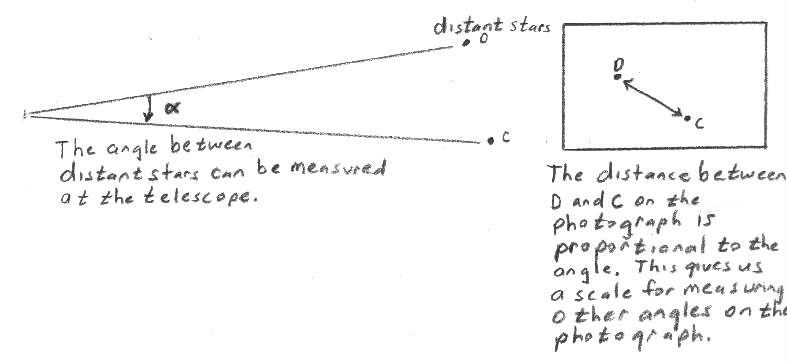 distant stars
D
α
C
The angle between
distant stars can be measured
at the telescope.
D
C
The distance between
D and C on the
photograph is
proportional to the
angle. This gives us
a scale for measuring
other angles on the
photograph.